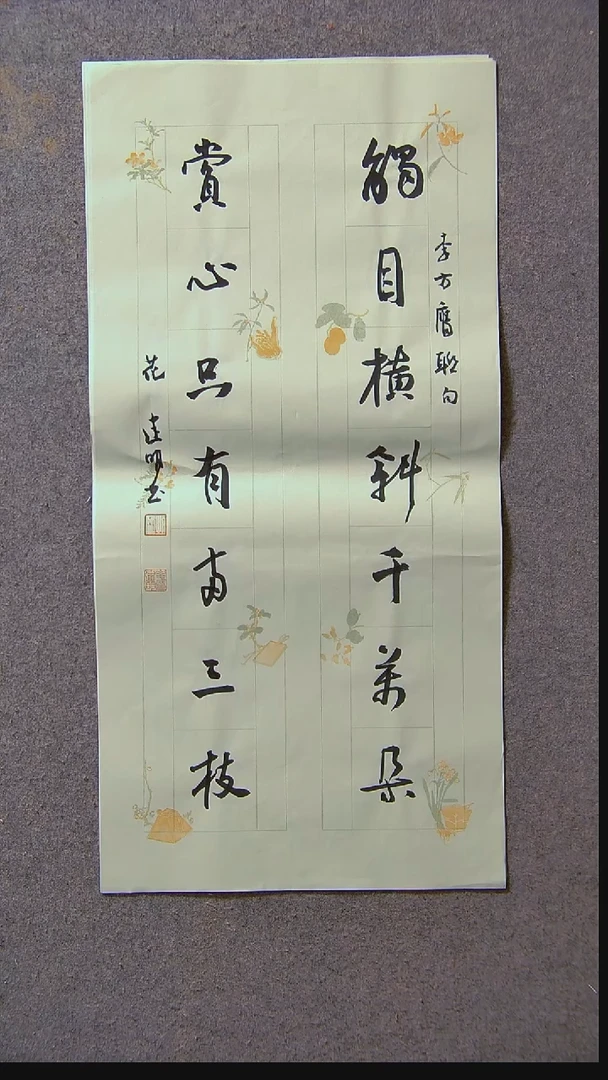 李方膺聯句
觸目橫斜千萬朵
賞心只有兩三枝
花達明书